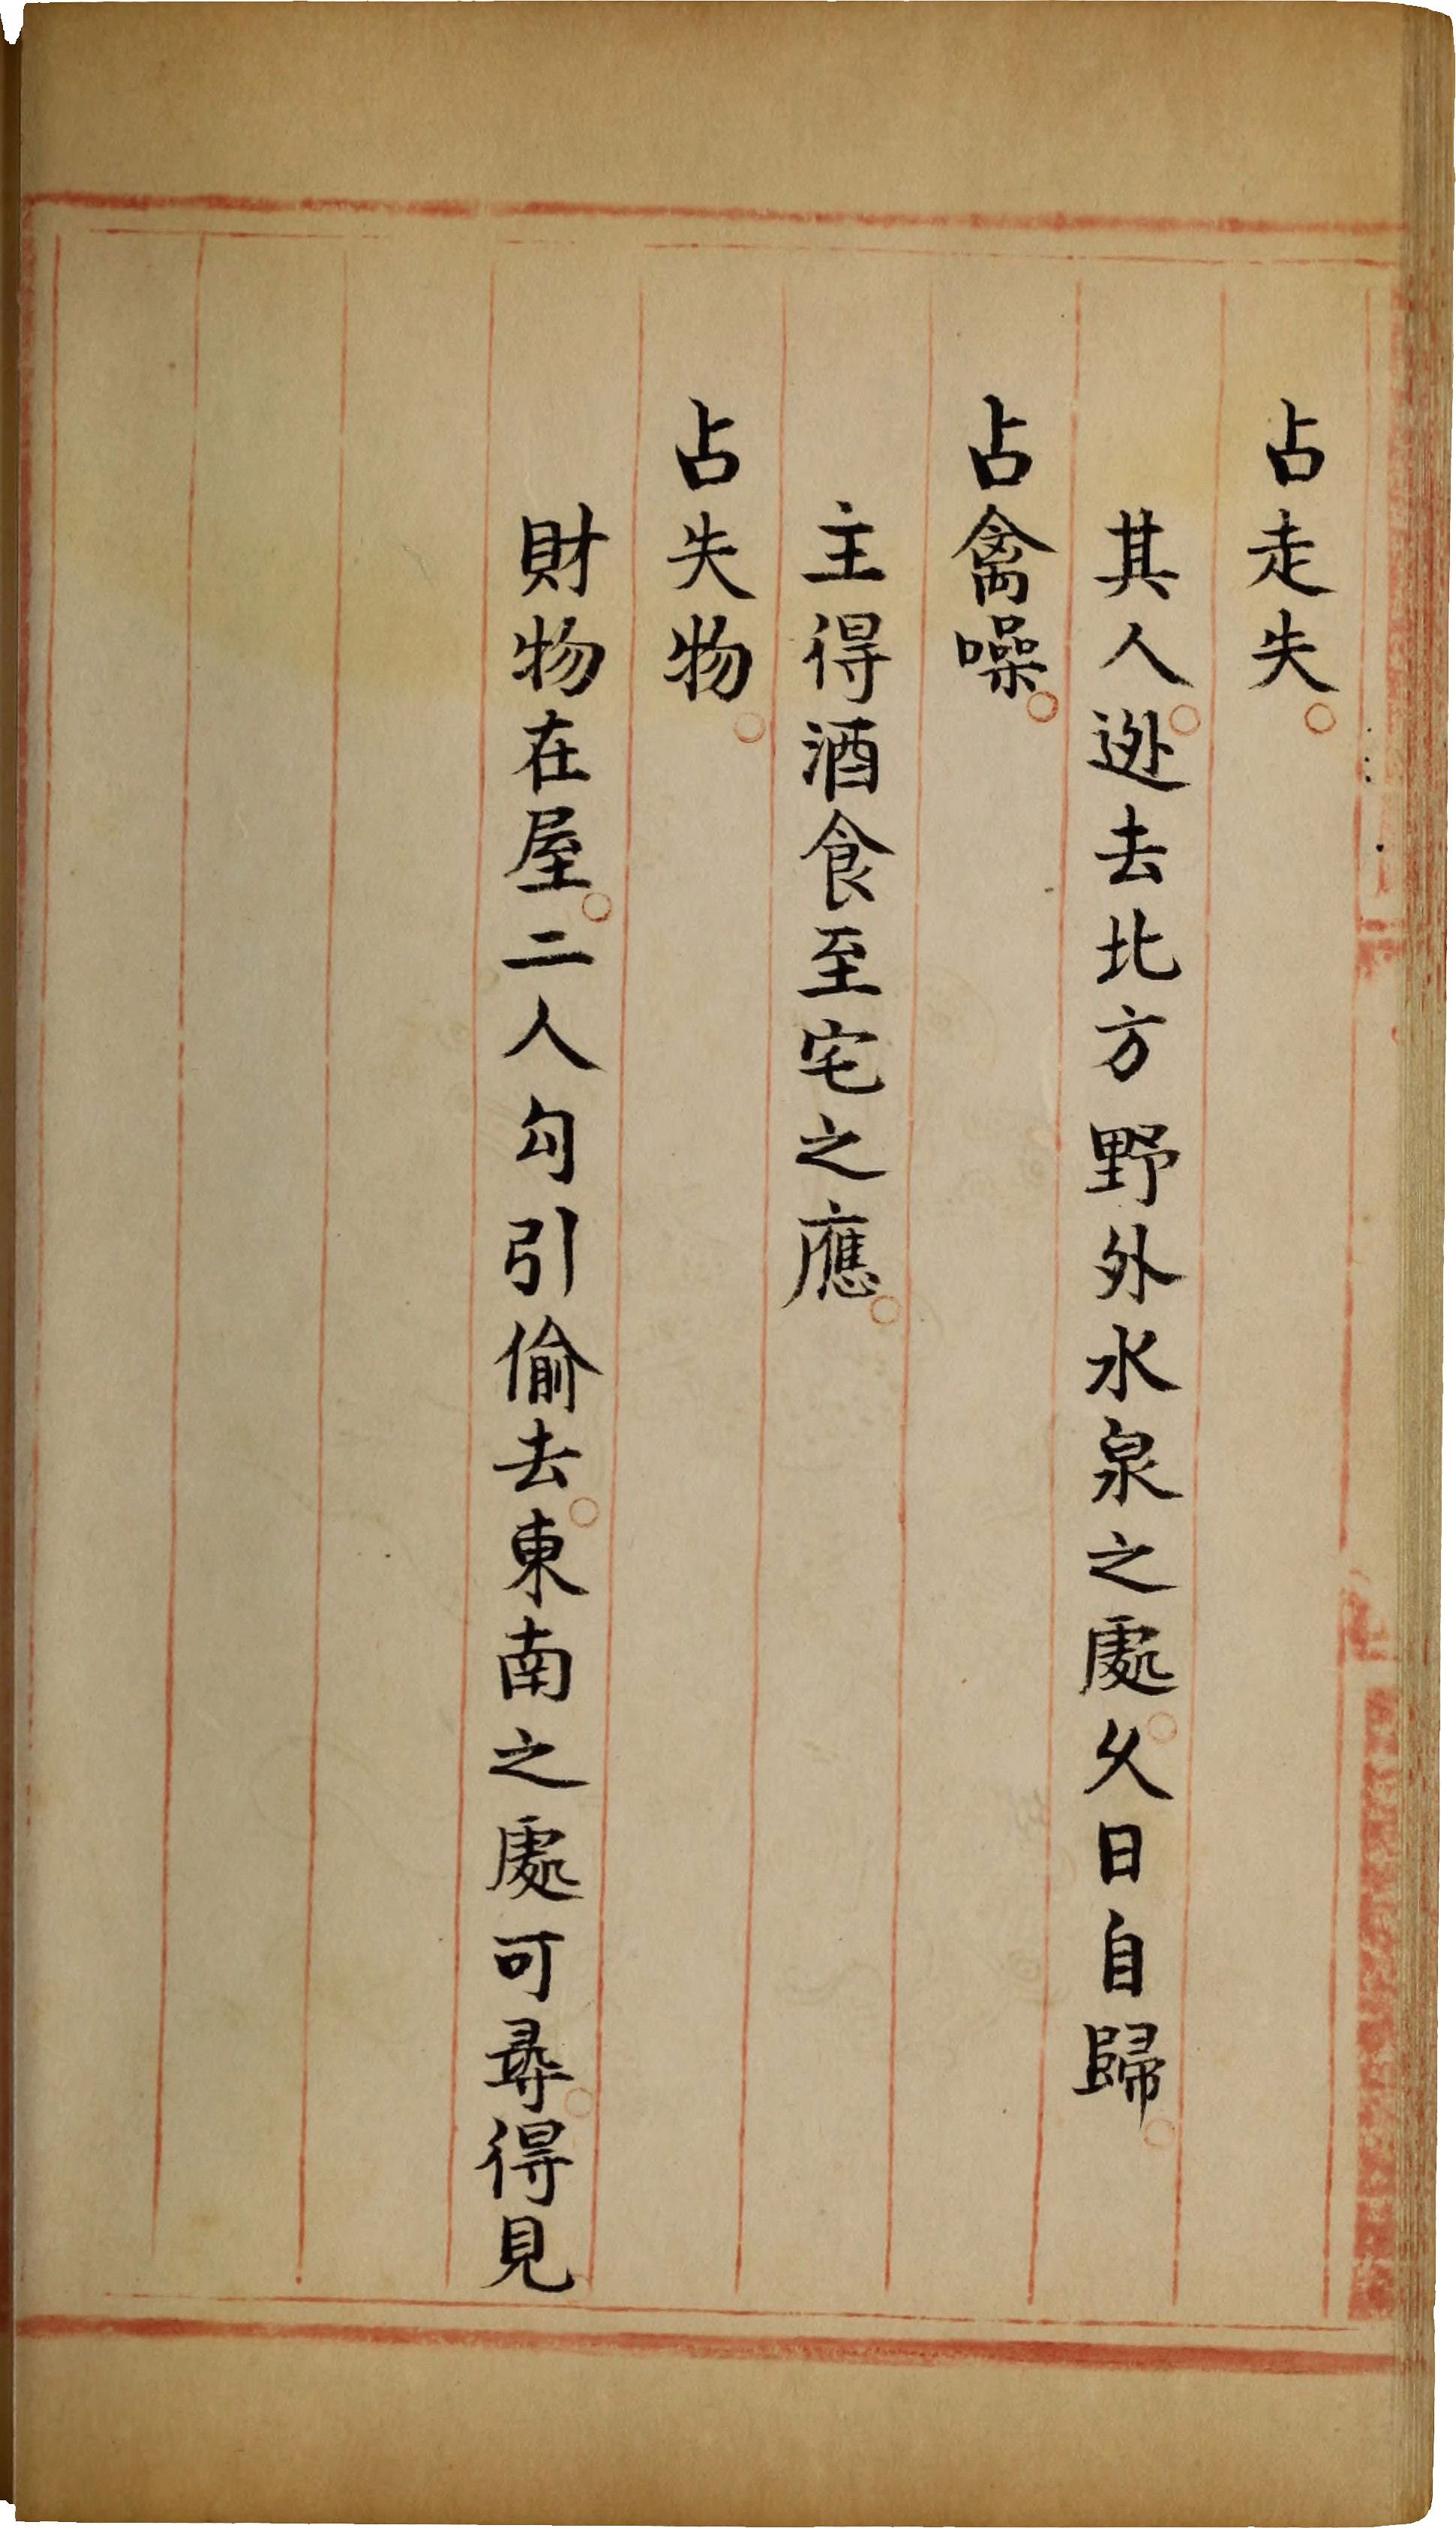 占走失。
其人。逊去北方野外水泉之處。久日自歸。
占禽噪。
主得酒食至宅之應。
占失物。
財物在屋。二人勾引偷去。東南之處可尋。得見